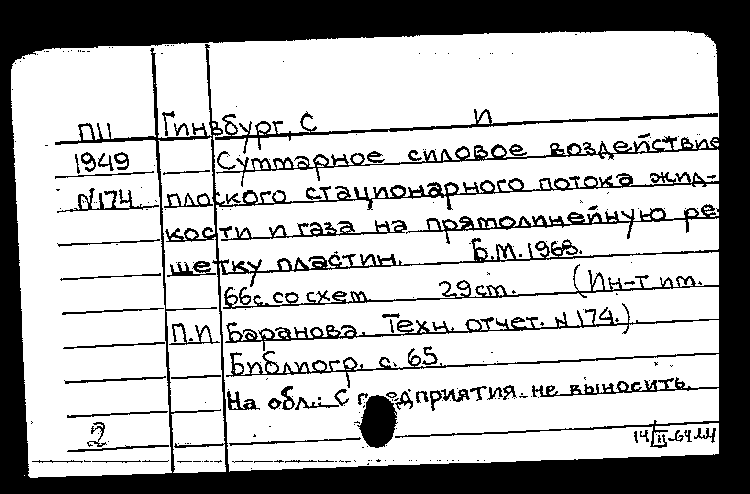 ПII Гинзбург, С И
1949 Суммарное силовое воздействие
N174 плоского стационарного потока жид-
кости и газа на прямолинейную ре-
шетку пластин. Б.М. 1968.
66с. со схем. 29 см. (Ин-т им.
П.И Баранова. Техн. отчет. N 174.).
Библиогр. с. 65.
На обл.: С предприятия не выносить.
2